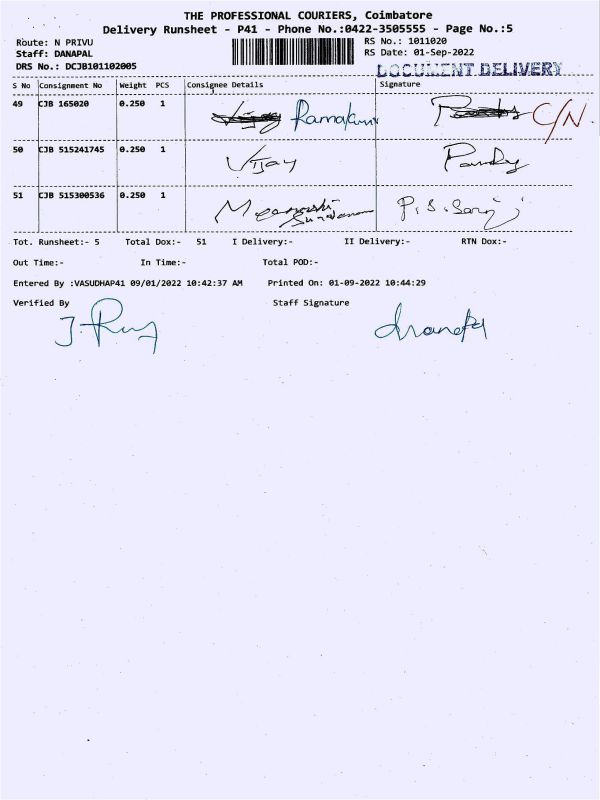 THE PROFESSIONAL COURIERS, Coimbatore
Delivery Runsheet - P41 - Phone No.:0422-3505555 - Page No.:5
Route: N PRIVU RS No.: 1011020
Staff: DANAPAL RS Date: 01-Sep-2022
DRS No.: DCJB101102005
DOCUMENT DELIVERY
S No Consignment No Weight PCS Consignee Details Signature
49 CJB 165020 0.250 1 Vijay Ramakumar C/N.
50 CJB 515241745 0.250 1 Vijay Pandy
51 CJB 515300536 0.250 1
Tot. Runsheet:- 5 Total Dox:- 51 I Delivery:- II Delivery:- RTN Dox:-
Out Time:- In Time:- Total POD:-
Entered By :VASUDHAP41 09/01/2022 10:42:37 AM Printed On: 01-09-2022 10:44:29
Verified By Staff Signature